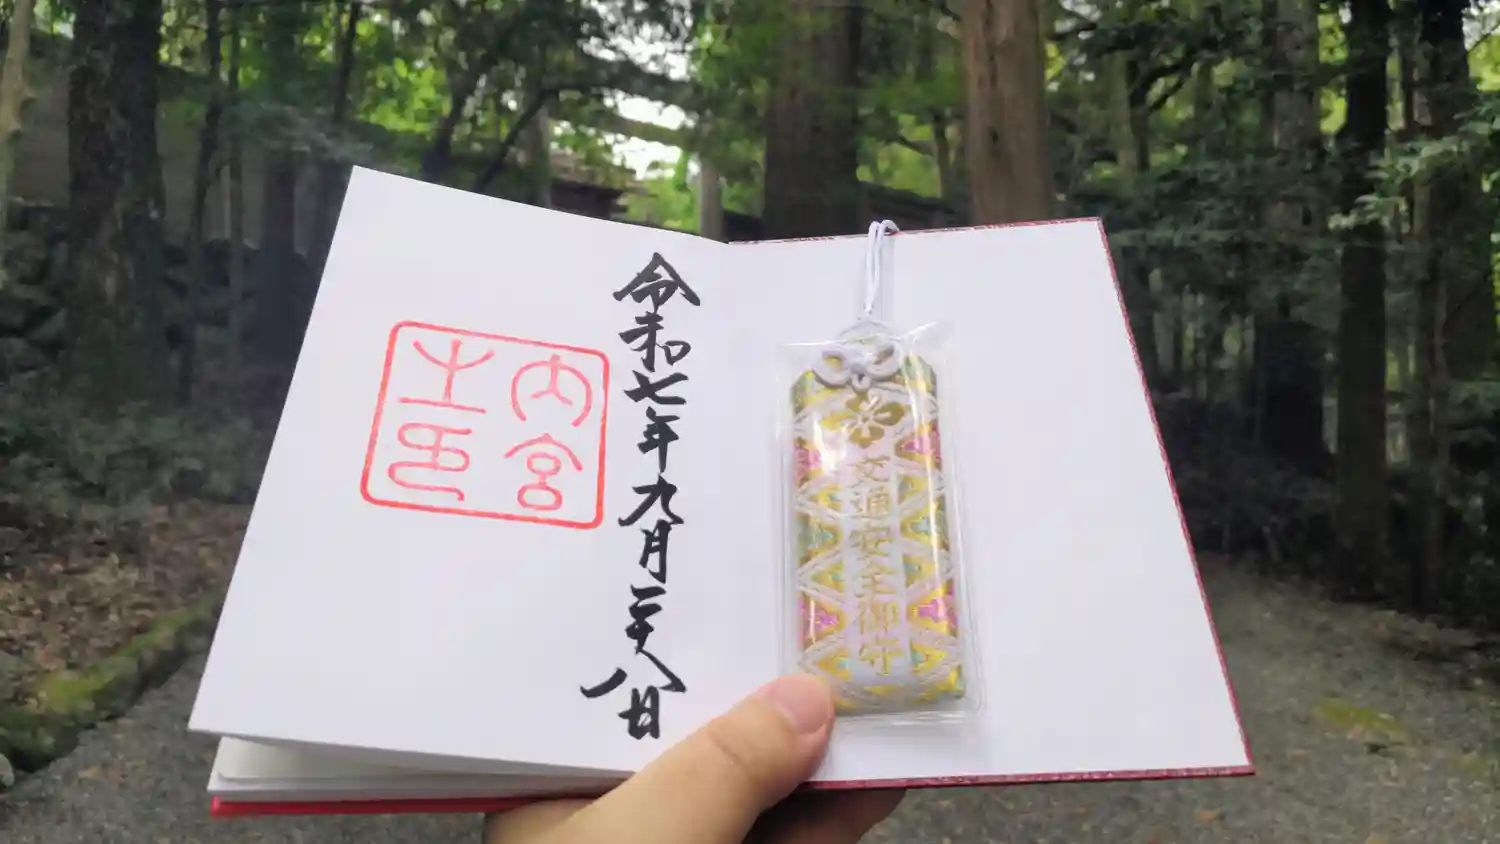 交通安全御守
令和七年九月二十八日
内宮
之印